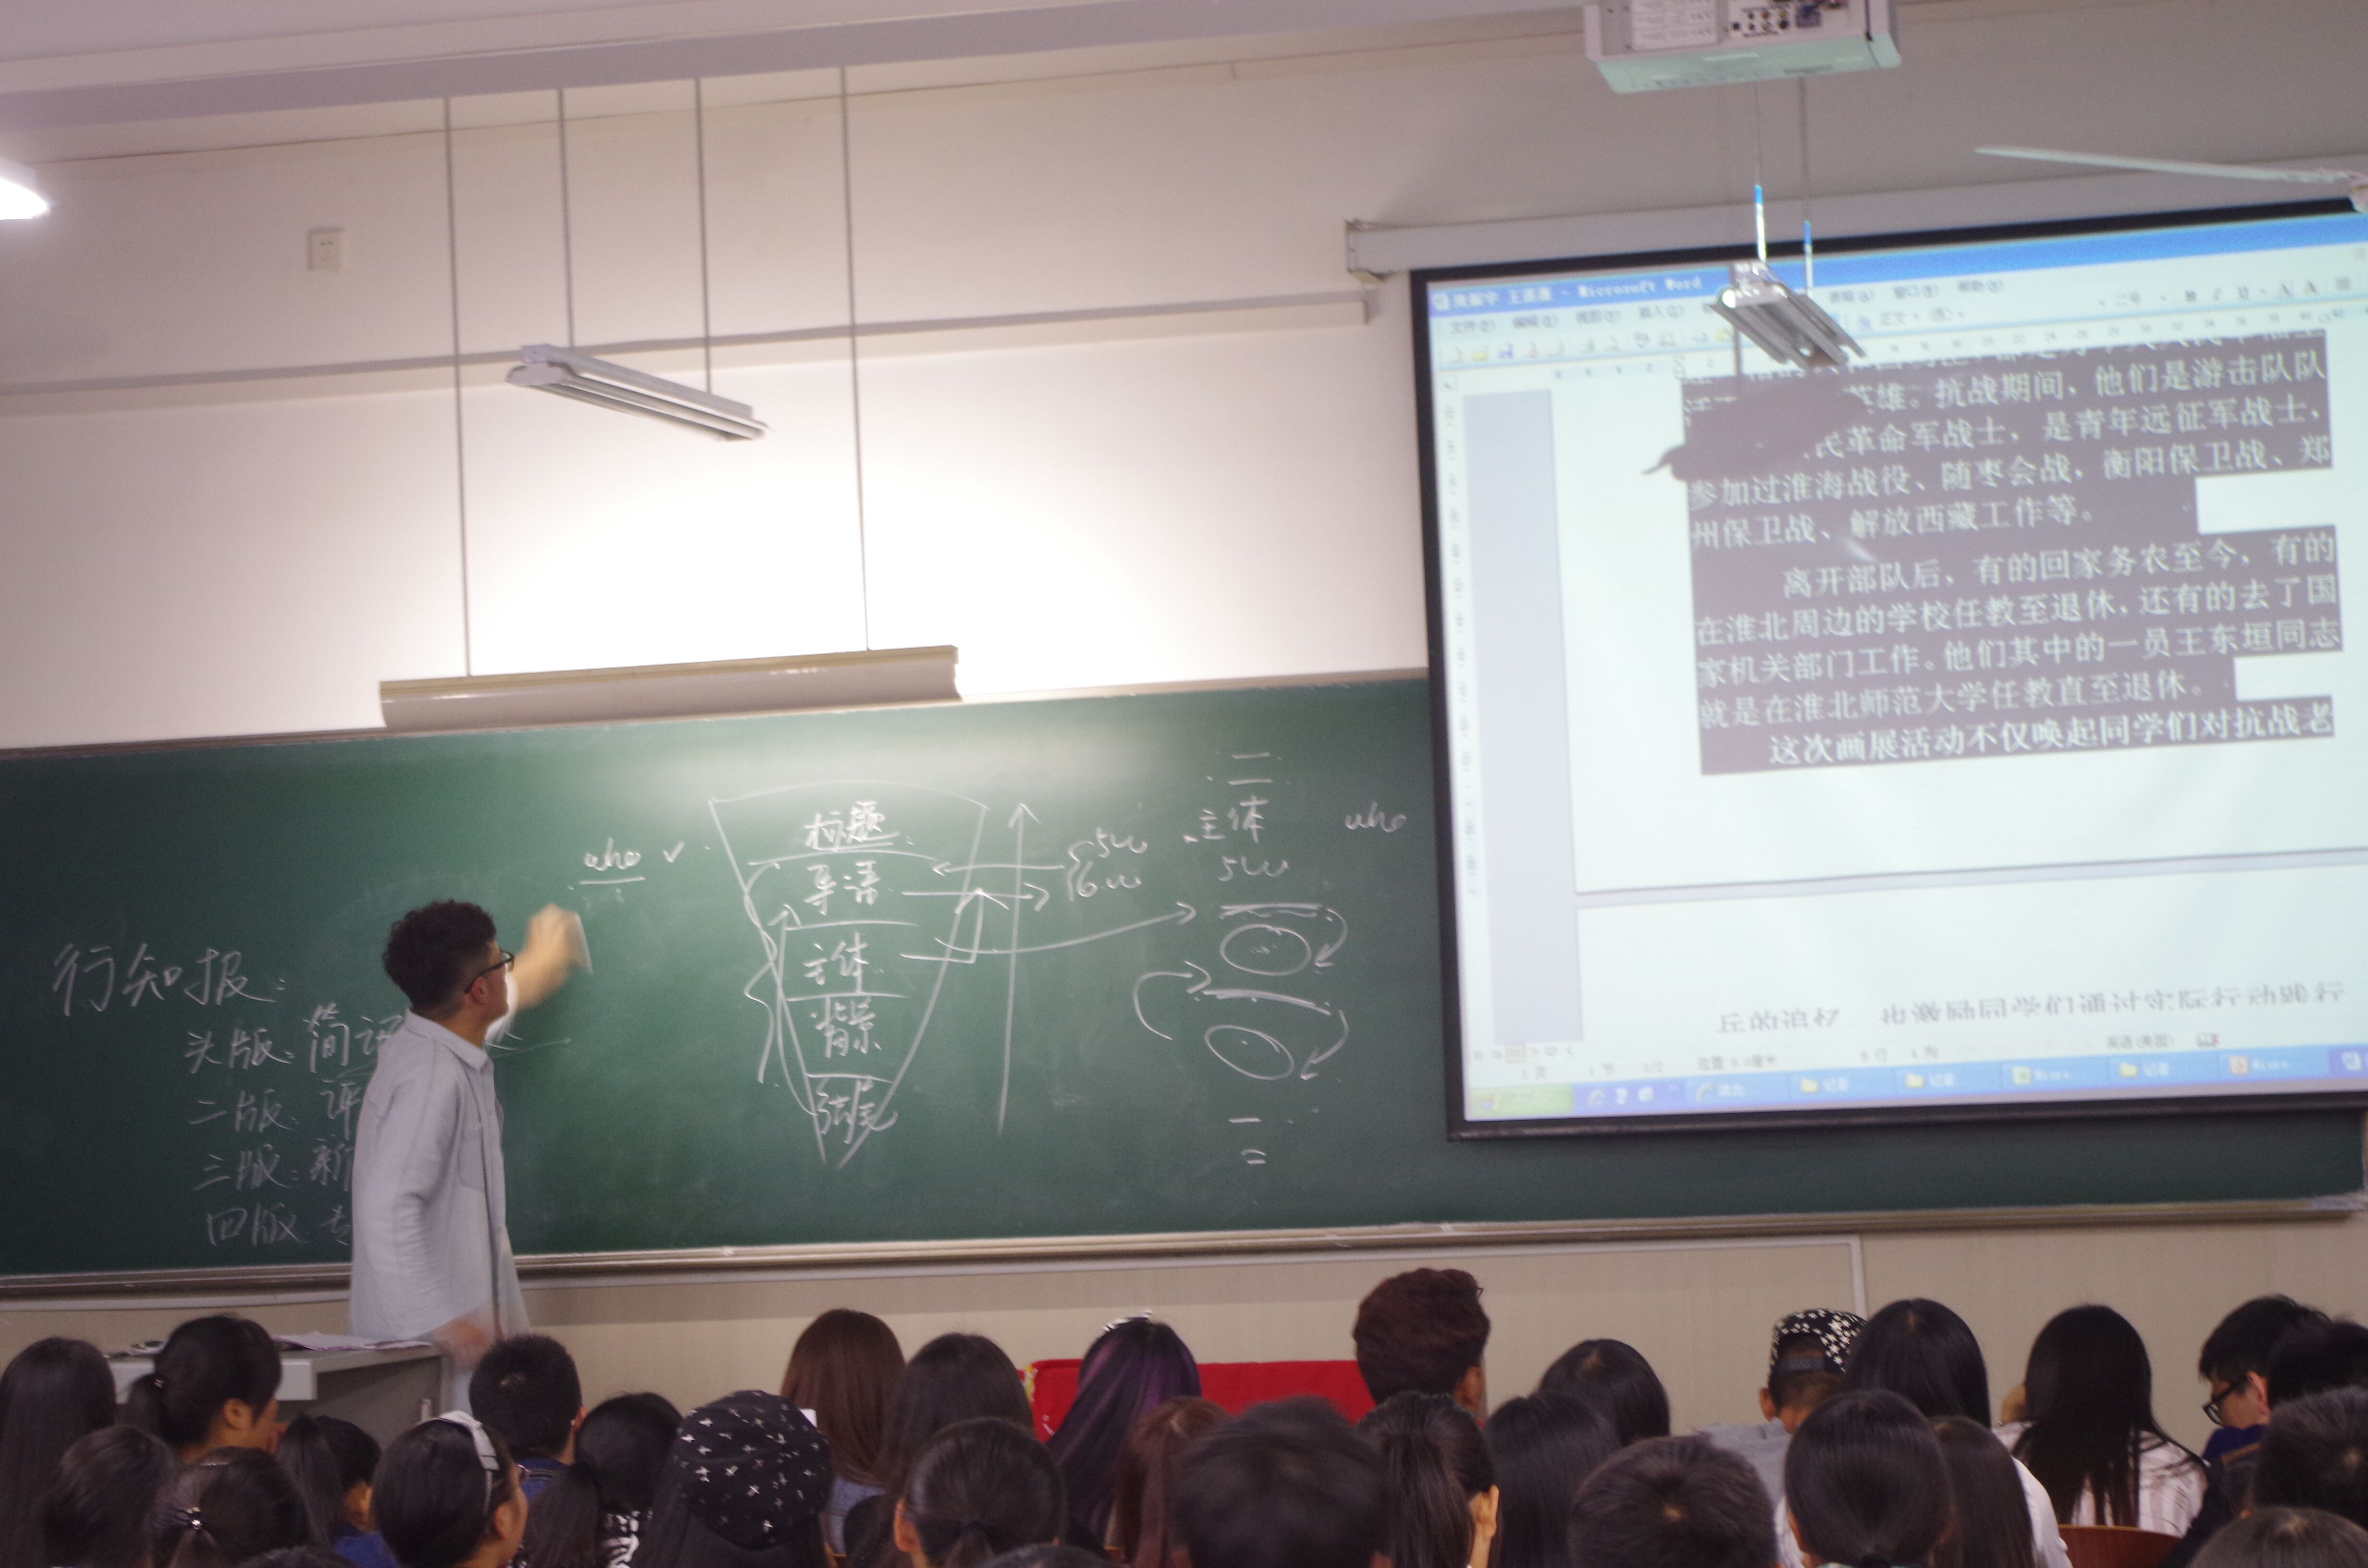 行知报:
头版: 简讯
二版: 评
三版: 新
四版: 专
who ✓
标题
导语
主体
背景
结尾
5w
6w
二
主体
5w
who
一
二
- Microsoft Word
文件(F) 编辑(E) 视图(V) 插入(I) 表格(A) 窗口(W) 帮助(H)
英雄。抗战期间，他们是游击队队
民革命军战士，是青年远征军战士，
参加过淮海战役、随枣会战，衡阳保卫战、郑
州保卫战、解放西藏工作等。
离开部队后，有的回家务农至今，有的
在淮北周边的学校任教至退休，还有的去了国
家机关部门工作。他们其中的一员王东垣同志
就是在淮北师范大学任教直至退休。
这次画展活动不仅唤起同学们对抗战老
兵的追忆 也激励同学们通过实际行动践行
1 页 1 节 1/2 8 行 4 列 英语(美国)